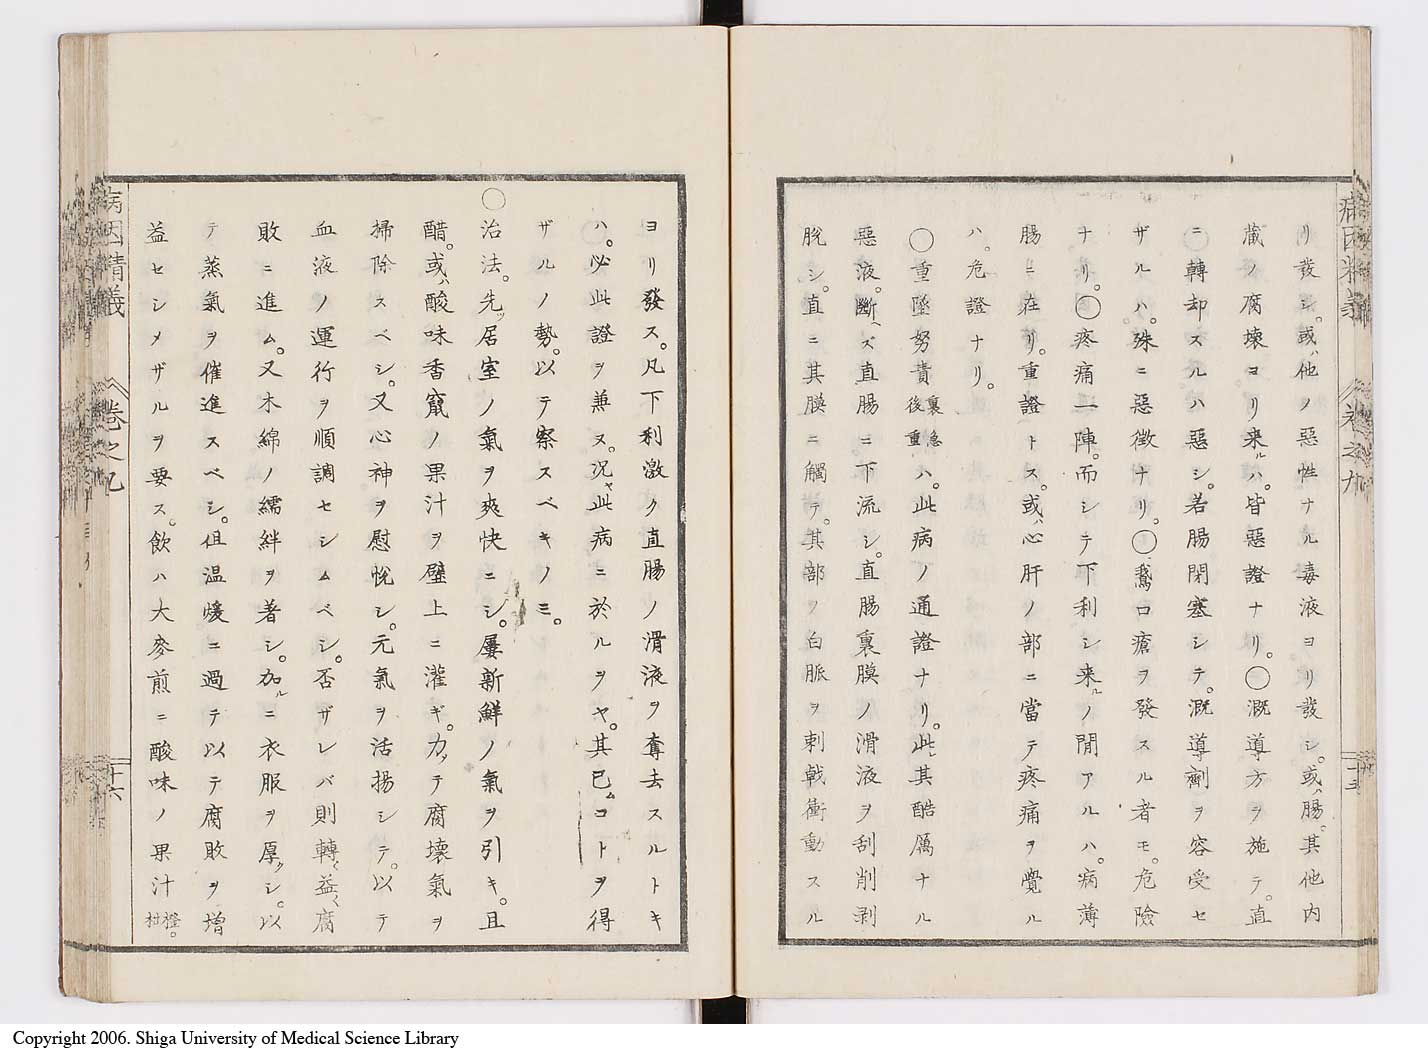 リ發シ。或ハ他ノ惡性ナル毒液ヨリ發シ。或ハ腸。其他内
藏ノ腐壊ヨリ来ルハ。皆惡證ナリ。○漑導方ヲ施テ。直
ニ轉却スルハ惡シ。若腸閉塞シテ。漑導劑ヲ容受セ
ザルハ。殊ニ惡徴ナリ。○鵞口瘡ヲ發スル者モ。危險
ナリ。○疼痛一陣。而シテ下利シ来ルノ間アルハ。病薄
腸ニ在リ。重證トス。或ハ心肝ノ部ニ當テ疼痛ヲ覺ル
ハ。危證ナリ。
○重墜努責裏急後重ハ。此病ノ通證ナリ。此レ其酷厲ナル
惡液。斷ヘズ直腸ニ下流シ。直腸裏膜ノ滑液ヲ刮削剥
脫シ。直ニ其膜ニ觸テ。其部ノ白脈ヲ刺戟衝動スル
病因精義 卷之九 十五
ヨリ發ス。凡下利激ク直腸ノ滑液ヲ奪去スルトキ
ハ。必此證ヲ兼ヌ。况ヤ此病ニ於ルヲヤ。其已ムコトヲ得
ザルノ勢。以テ察スベキノミ。
○治法。先ツ居室ノ氣ヲ爽快ニシ。屢新鮮ノ氣ヲ引キ。且
醋。或ハ酸味香竄ノ果汁ヲ壁上ニ灌ギ。力ツテ腐壊氣ヲ
掃除スベシ。又心神ヲ慰悅シ。元氣ヲ活揚シテ。以テ
血液ノ運行ヲ順調セシムベシ。否ザレバ則轉〱益〱腐
敗ニ進ム。又木綿ノ繻絆ヲ著シ。加ルニ衣服ヲ厚クシ。以
テ蒸氣ヲ催進スベシ。但温煖ニ過テ以テ腐敗ヲ増
益セシメザルヲ要ス。飲ハ大麥煎ニ酸味ノ果汁橙。柑
病因精義 卷之九 十六
Copyright 2006. Shiga University of Medical Science Library